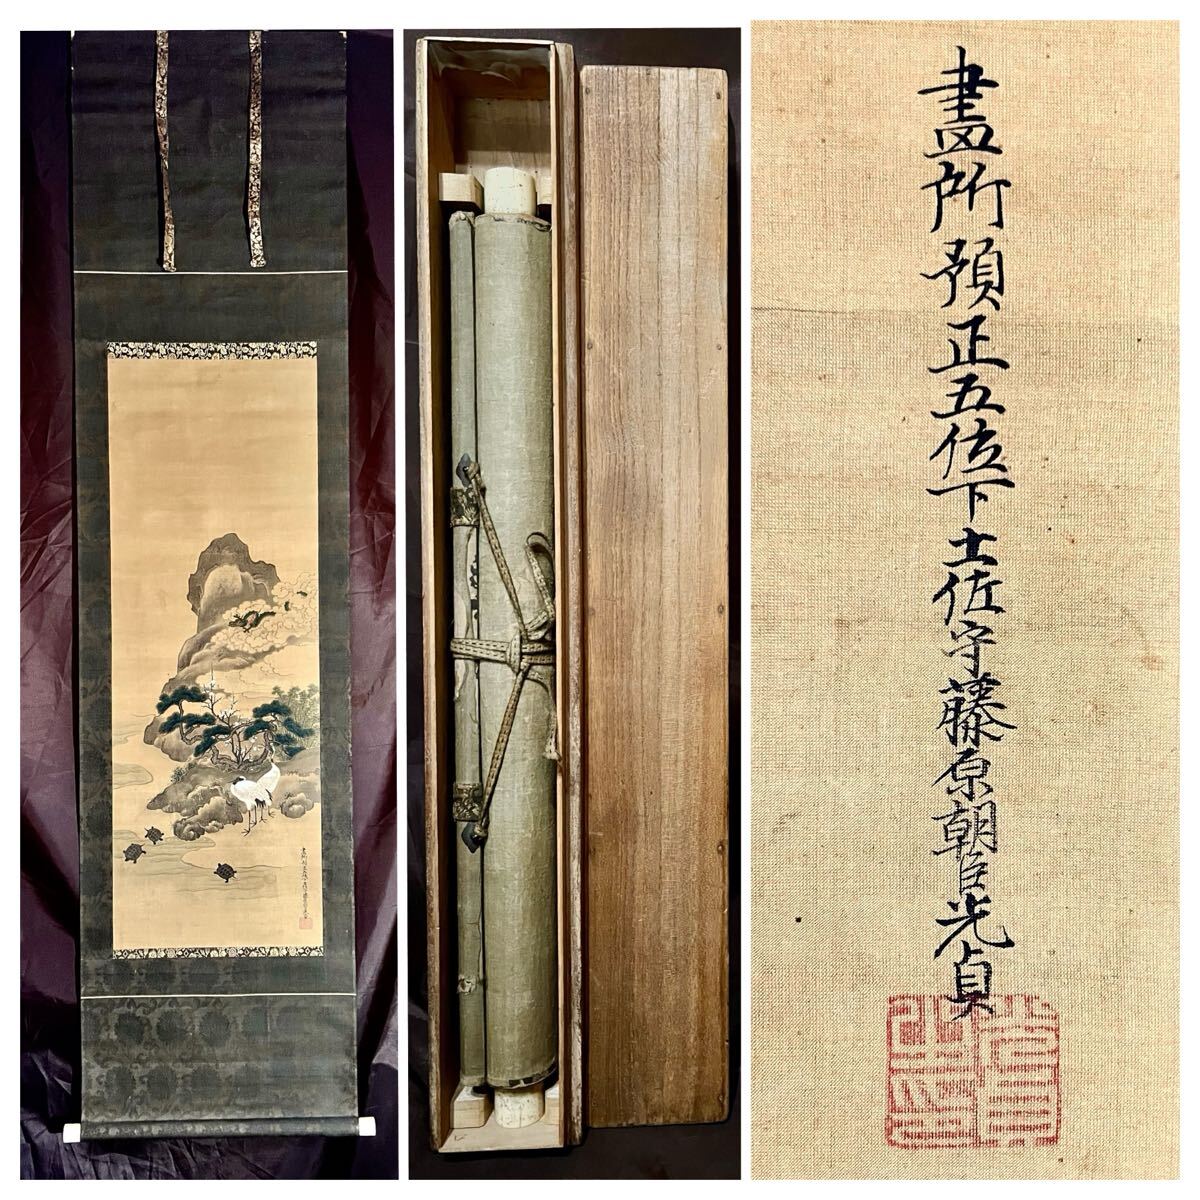 畫所預正五位下土佐守藤原朝臣光貞